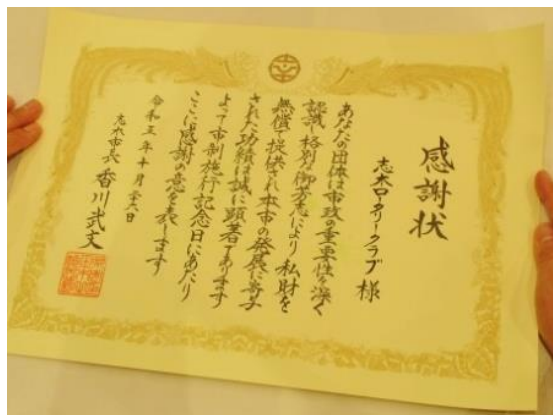 感謝状
志木ロータリークラブ 様
あなたの団体は市政の重要性を深く
認識し格別の御芳志により私財を
無償で提供され本市の発展に寄与
された功績は誠に顕著であります
よって市制施行記念日にあたり
ここに感謝の意を表します
令和五年十月二十六日
志木市長 香川武文